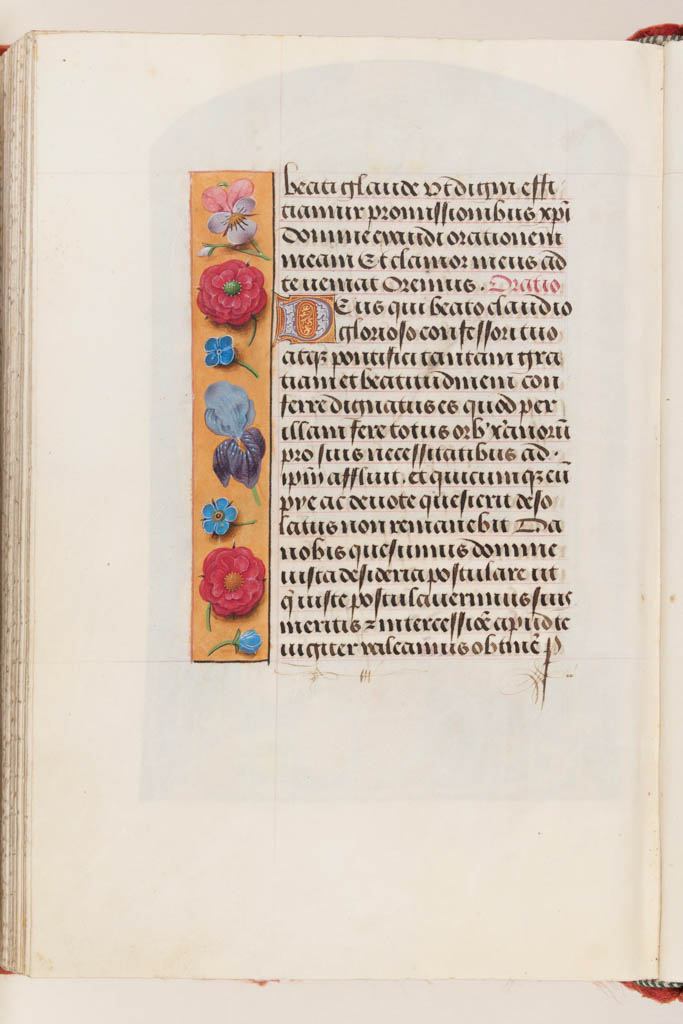 beati glaude vt digni effi
ciamur promissionibus xp̄i
domine exaudi orationem
meam Et clamor meus ad
te veniat Oremus. Oratio
Deus qui beato claudio
glorioso confessori tuo
atqʒ pontifici tantam gra
tiam et beatitudinem con
ferre dignatus es quod per
illam fere totus orb' xp̄ianorū
pro suis necessitatibus ad
ipm̄ affluit. et quicumqʒ eū
pye ac deuote quesierit deso
latus non remanebit Da
nobis quesumus domine
iusta desideria postulare ut
q̄ iuste postulauerimus suis
meritis ⁊ intercessiōe apud te
iugiter valeamus obtinē̄ P